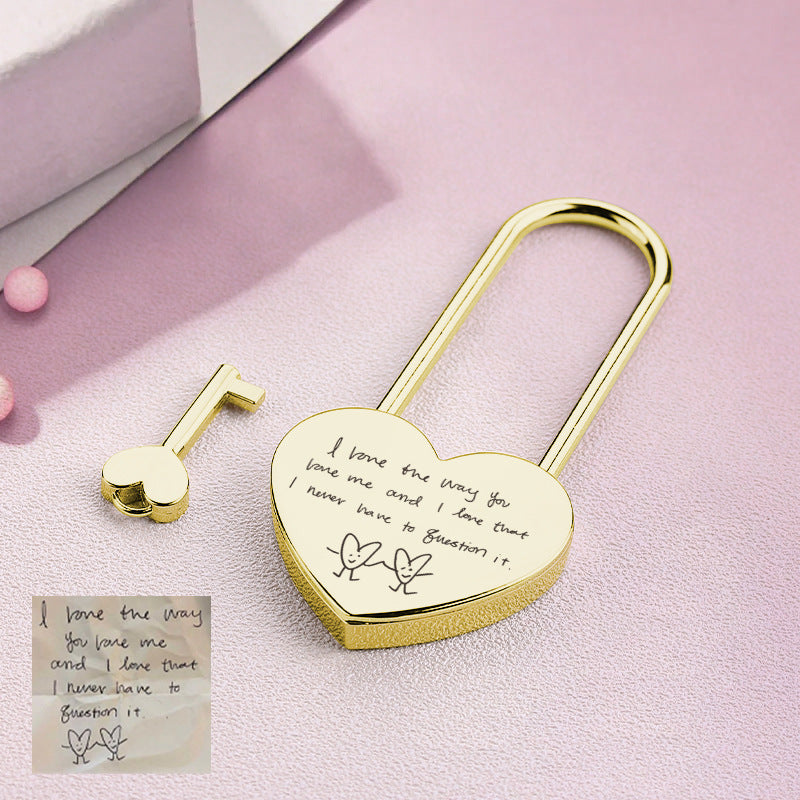 I love the way you
love me and I love that
I never have to question it.
I love the way
you love me
and I love that
I never have to
question it.